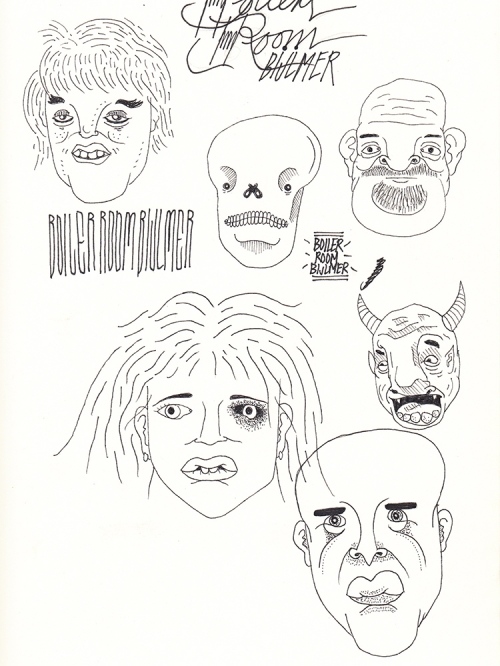 Boiler
Room
BIJLMER
BOILER ROOM BIJLMER
BOILER
ROOM
BIJLMER